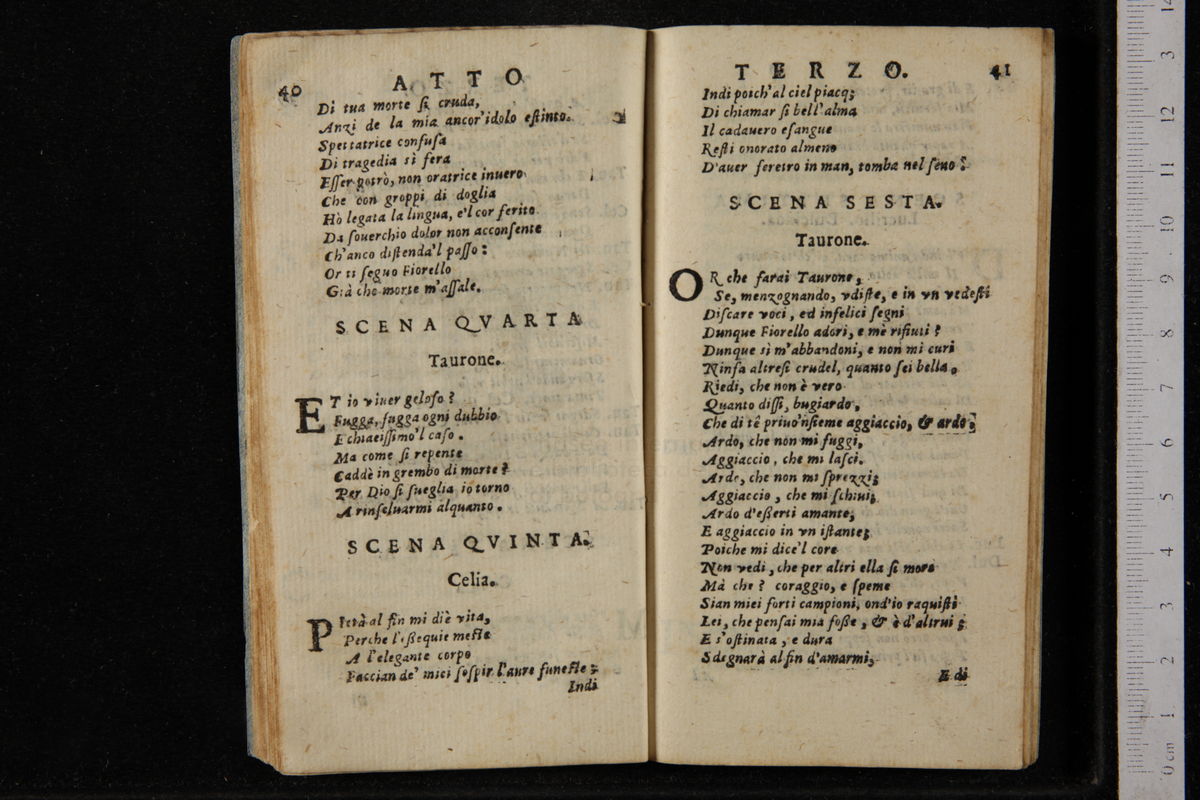 40 ATTO
Di tua morte sì cruda,
Anzi de la mia ancor'idolo estinto.
Spettatrice confusa
Di tragedia sì fera
Esser potrò, non oratrice invero
Che con groppi di doglia
Hò legata la lingua, e'l cor ferito
Da souerchio dolor non acconsente
Ch'anco distenda'l passo:
Or ti seguo Fiorello
Già che morte m'assale.
SCENA QVARTA
Taurone.
ET io viuer geloso?
Fugga, fugga ogni dubbio
E chiaeissimo'l caso.
Ma come si repente
Caddè in grembo di morte?
Per Dio si sueglia io torno
A rinseluarmi alquanto.
SCENA QVINTA.
Celia.
Pietà al fin mi diè vita,
Perche l'essequie meste
A l'elegante corpo
Faccian de' miei sospir l'aure funeste;
Indi
TERZO. 41
Indi poich'al ciel piacq;
Di chiamar sì bell'alma
Il cadauero esangue
Resti onorato almeno
D'auer feretro in man, tomba nel seno?
SCENA SESTA.
Taurone.
OR che farai Taurone,
Se, menzognando, vdiste, e in vn vedesti
Discare voci, ed infelici segni
Dunque Fiorello adori, e mè rifiuti?
Dunque sì m'abbandoni, e non mi curi
Ninfa altresi crudel, quanto sei bella.
Riedi, che non è vero
Quanto dissi, bugiardo,
Che di tè priuo'nsieme aggiaccio, & ardo;
Ardo, che non mi fuggi,
Aggiaccio, che mi lasci.
Arde, che non mi sprezzi;
Aggiaccio, che mi schiui;
Ardo d'esserti amante;
E aggiaccio in vn istante;
Poiche mi dice'l core
Non vedi, che per altri ella si more
Mà che? coraggio, e speme
Sian miei forti campioni, ond'io raquisti
Lei, che pensai mia fosse, & è d'altrui;
E s'ostinata, e dura
Sdegnarà al fin d'amarmi;
E di
0 cm 1 2 3 4 5 6 7 8 9 10 11 12 13 14